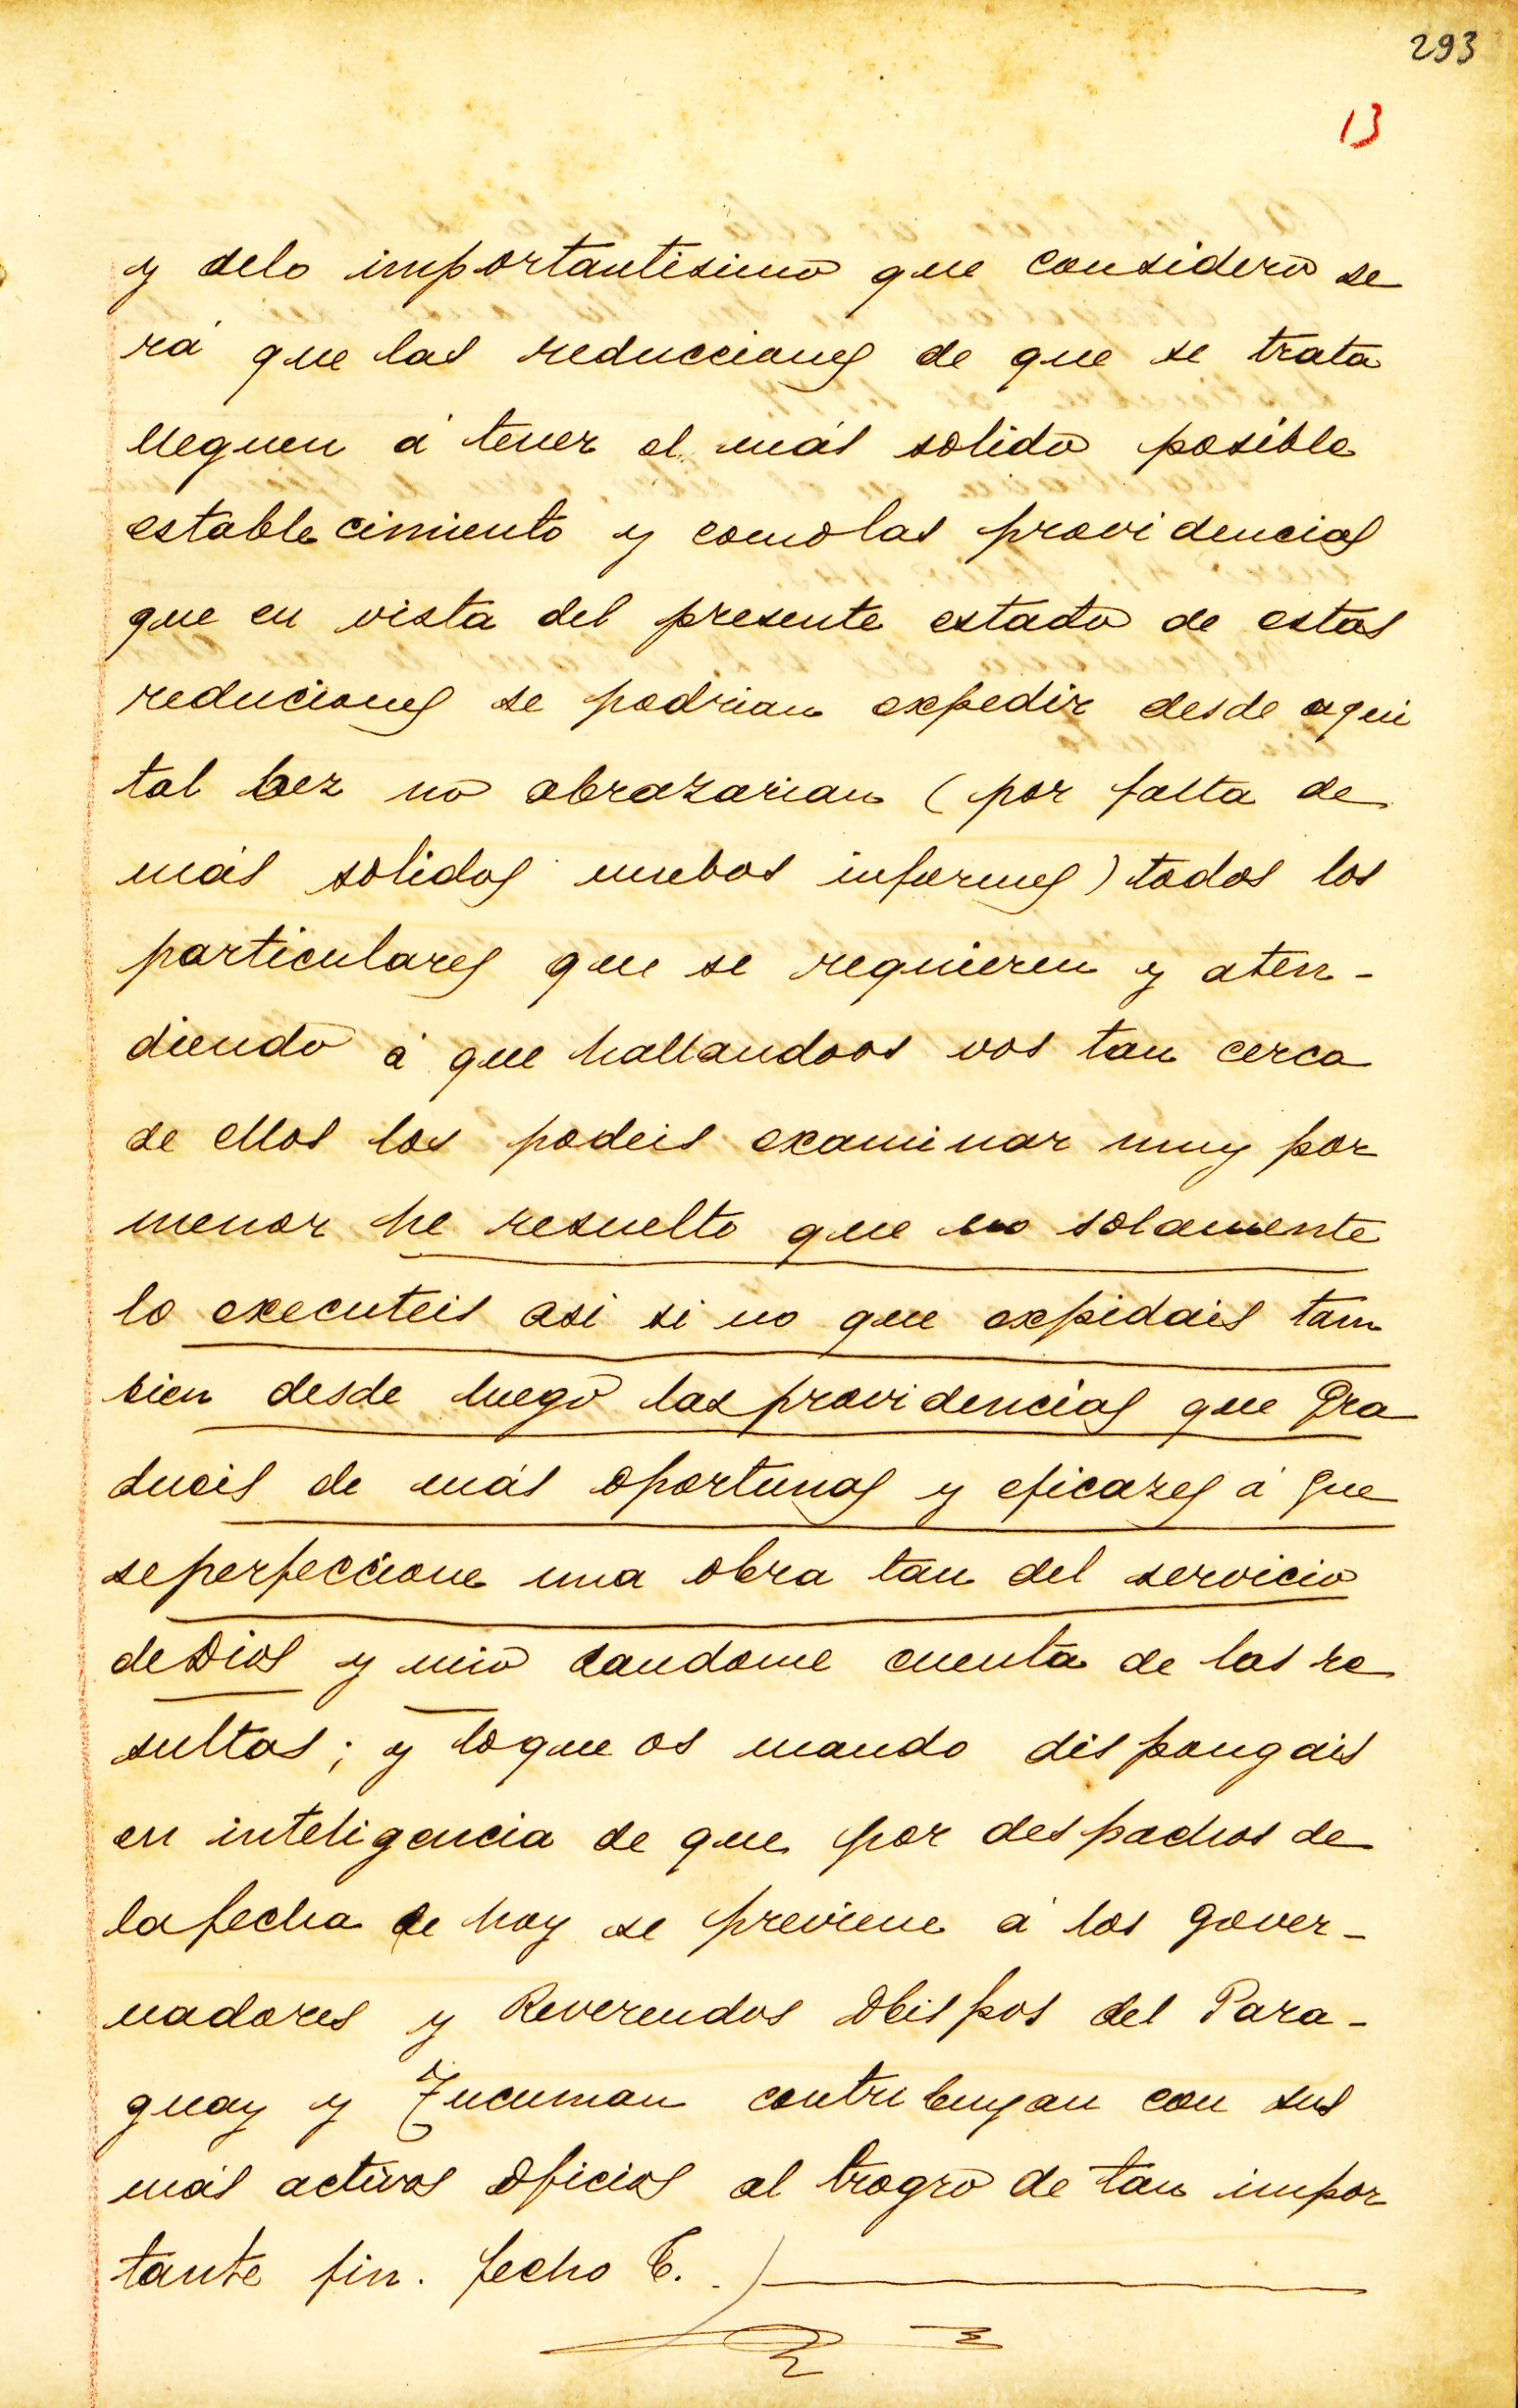 293
13
y delo importantisimo que considero se
rá que las reducciones de que se trata
lleguen á tener el más solido posible
establecimiento y comolas providencias
que en vista del presente estado de estas
reduciones se podrian expedir desde aqui
tal bez no abrazarian (por falta de
más solidos nuebos informes) todos los
particulares que se requieren y aten-
diendo á que hallandoos vos tan cerca
de ellos los podeis examinar muy por
menor he resuelto que no solamente
lo executeis asi si no que expidais tam
bien desde luego las providencias que Gra
dueis de más oportunas y eficazes á que
seperfeccione una obra tan del servicio
deDios y mio dandome cuenta de las re
sultas; y loque os mando dispongais
en inteligencia de que por despachos de
lafecha de hoy se previene á los gover-
nadores y Reverendos Obispos del Para-
guay y Tucuman contribuyan con sus
más activos Oficios al logro de tan impor
tante fin. fecho